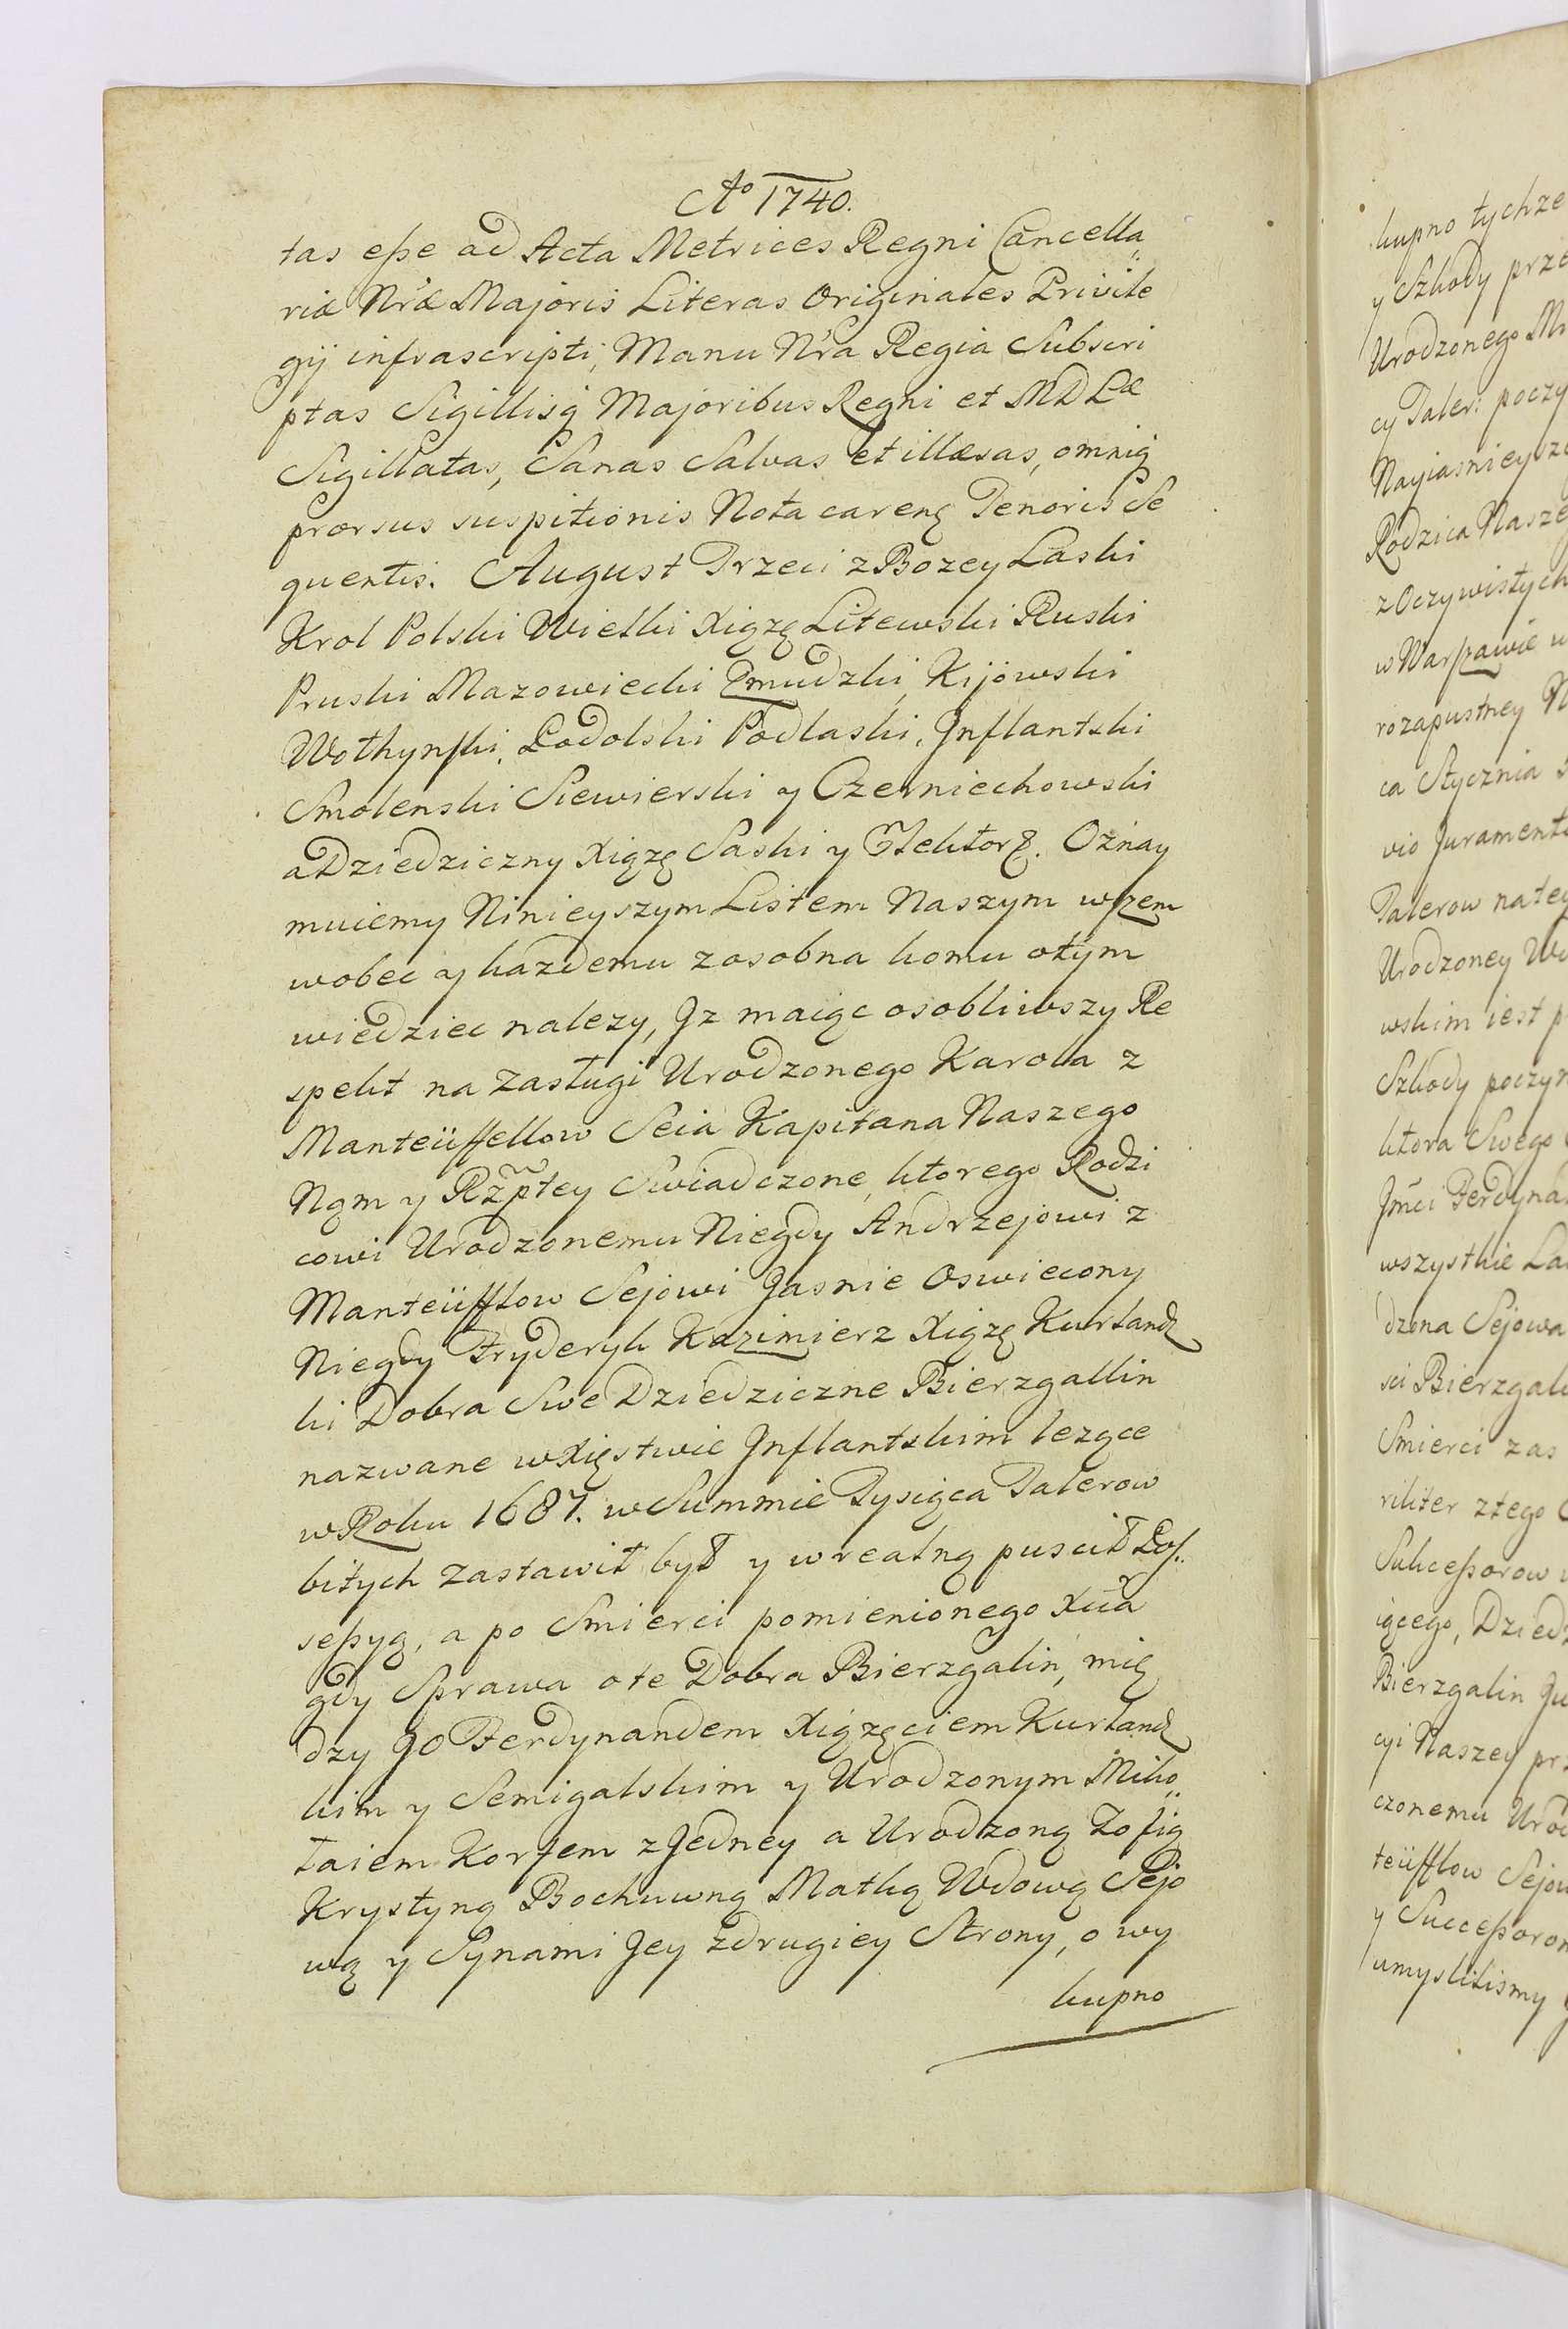 Aͦ 1740.
tas eße ad Acta Metrices Regni Cancella„
riæ Nr̃æ Majoris Literas Originales Privile
gij infrascripti, Manu N'ra Regia Subscri
ptas Sigillisq̨ Majoribus Regni et MD Læ
Sigillatas, Sanas Salvas et illæsas, omniq̨
prorsus suspitionis Nota careñ Tenoris Se
quentis. August Trzeci z Bozey Laski
Krol Polski Wielki Xiąze Litewski Ruski
Pruski Mazowiecki Zmudzki, Kijowski
Wołhynski, Podolski Podlaski, Jnflantski
Smolenski Siewierski y Czerniechowski
a Dziedziczny Xiążę Saski y Elektorz. Oznay
muiemy Ninieyszym Listem Naszym wszem
wobec y kazdemu zosobna komu otym
wiedziec nalezy, Jz maiąc osobliwszy Re
spekt na zasługi Urodzonego Karola z
Manteüffellow Seia Kapitana Naszego
Nam y Rz̃ptey Swiadczone, ktorego Rodzi
cowi Urodzonemu Niegdy Andrzejowi z
Manteüfflow Sejowi Jasnie Oswiecony
Niegdy Fryderyk Kazimierz Xiążę Kurlandz
ki Dobra Swe Dziedziczne Bierzgallin
nazwane w Xięstwie Jnflantskim lezące
w Roku 1687. w Summie Tysiąca Talerow
bitych zastawił był y w realną puscił Poſ„
seßyą, a po Smierci pomienionego Xcia
gdy Sprawa o te Dobra Bierzgalin, mię
dzy JO Ferdynandem Xiązęciem Kurlandz
kim y Semigalskim y Urodzonym Miko„
łaiem Korfem z Jedney a Urodzoną Zofią
Krystyną Bochuwną Matką Wdową Sejo
wą y Synami Jey z drugiey Strony, o wy
kupno
kupno tychze
y Szkody prze
Urodzonego Mi
cy Taler: poczy
Nayiasnieysze
Rodzica Nasze
z Oczywistych
w Warszawie w
rozapustney
ca Stycznia
vio Jurament
Talerow natey
Urodzoney Wd
wskim iest p
Szkody poczyn
ktora Swego
Jm̃ci Ferdynan
wszystkie La
dzona Sejowa
sci Bierzgal
Smierci zas
riliter z tego
Sukceßorow
iącego, Dzied
Bierzgalin Ju
cyi Naszey prz
czonemu Urod
teüfflow Sejow
y Succeßorom
umyslilismy